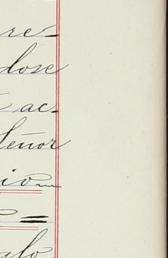 re-
dose
ac-
Señor
io
=
alo